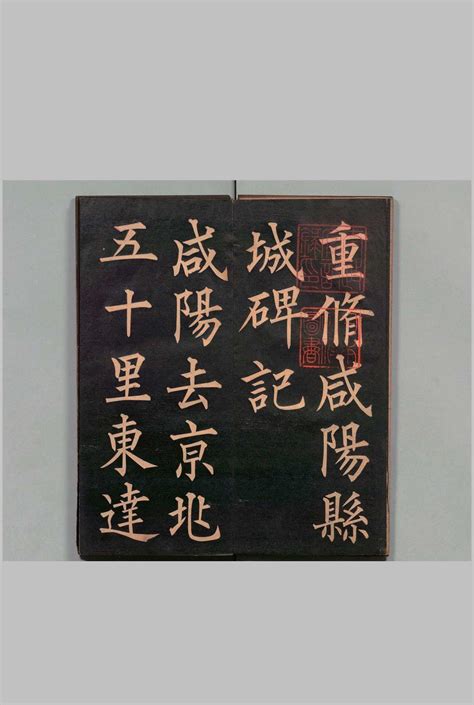 重脩咸陽縣
城碑記
咸陽去京兆
五十里東達